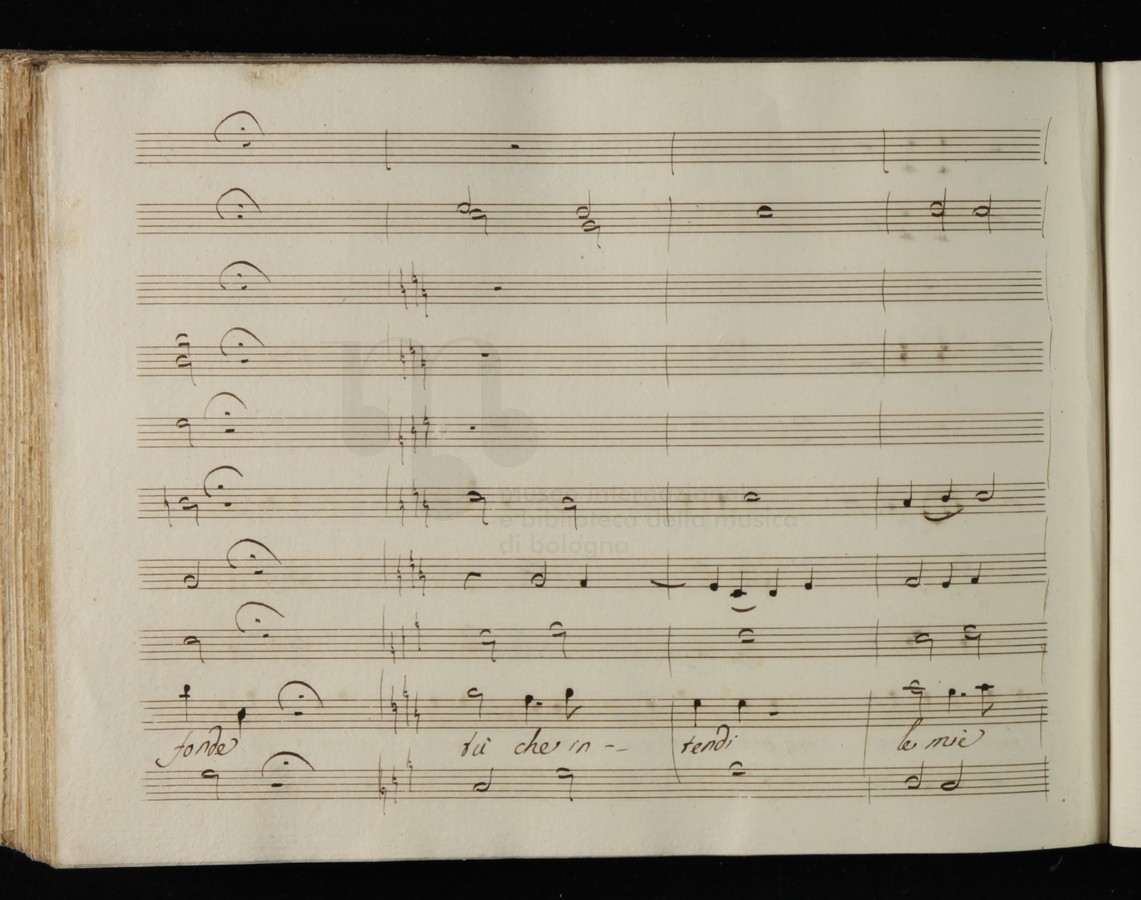 museo internazionale
e biblioteca della musica
di bologna
fonde tù che in -- tendi le mie